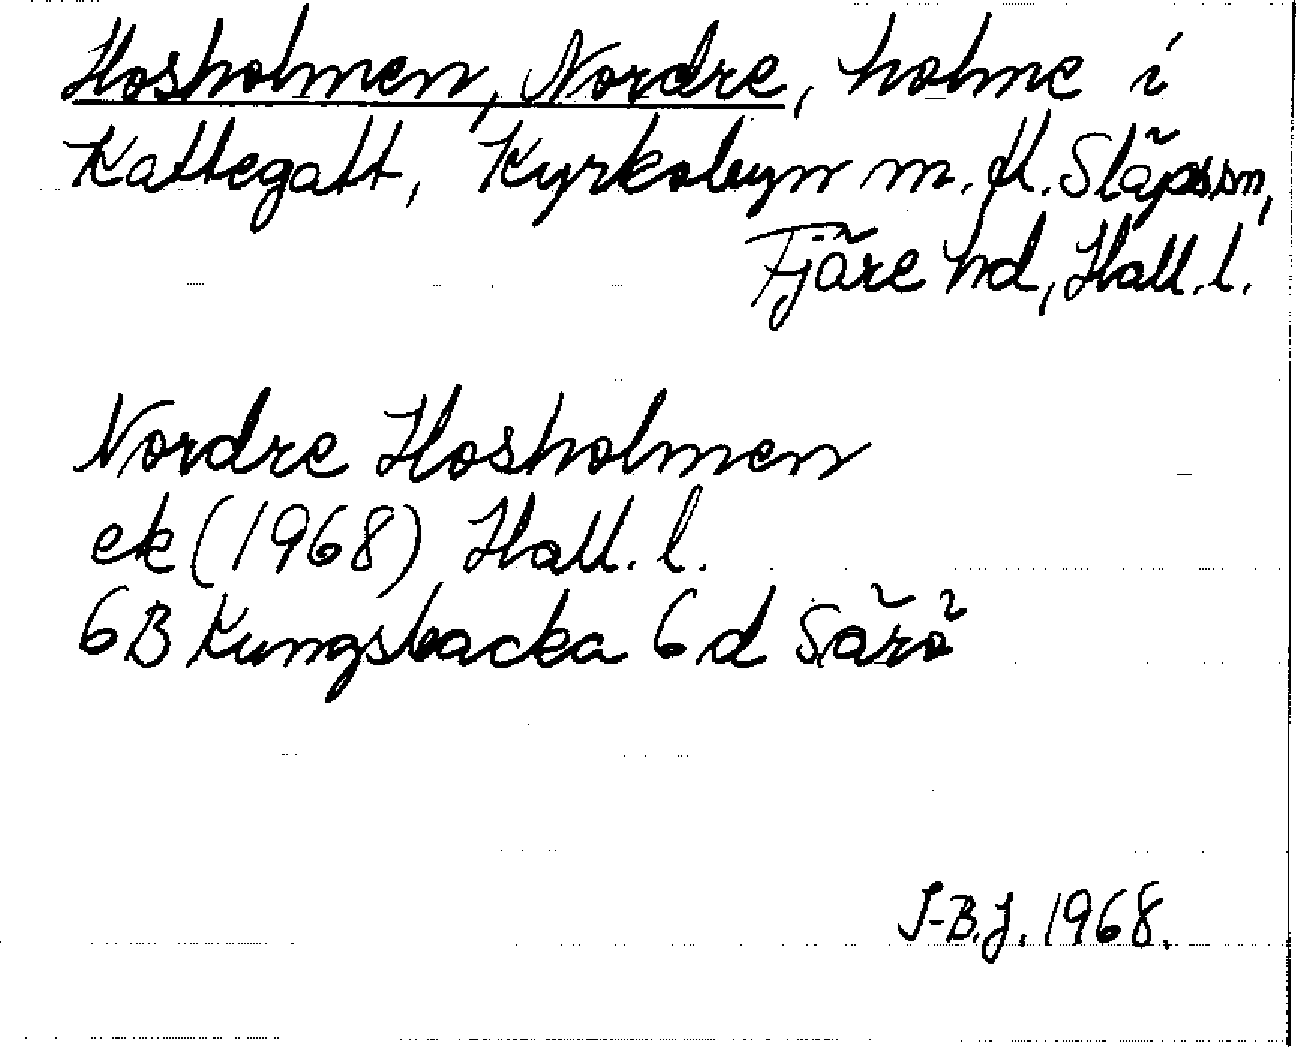 Hosholmen, Nordre, holme i
Kattegatt, Kyrkobyn m. fl. Släps sn,
Fjäre hd, Hall. l.
Nordre Hosholmen
ek (1968) Hall. l.
6B Kungsbacka 6 d Särö
I-B.J. 1968.